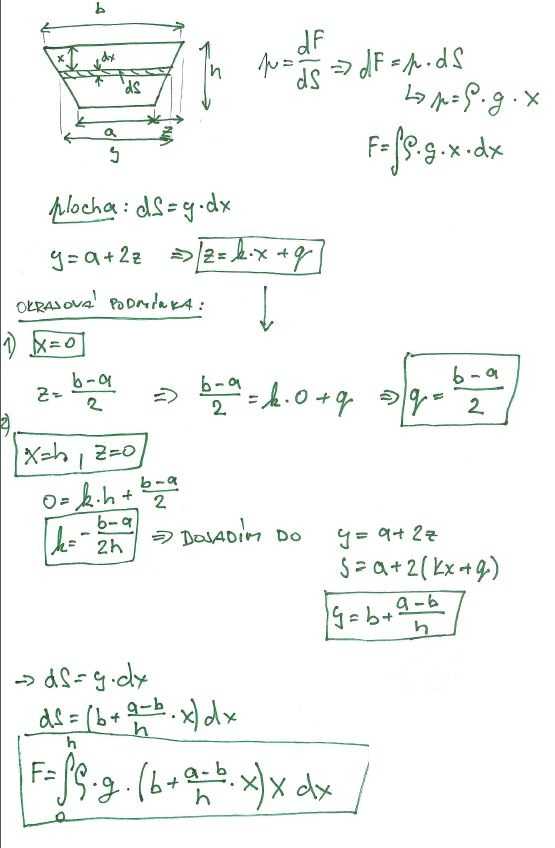 b
x dx h
dS
a z
y
p = dF/dS ⇒ dF = p · dS
↳ p = ρ · g · x
F = ∫ρ · g · x · dx
plocha: dS = y · dx
y = a + 2z ⇒ z = k · x + q
OKRAJOVÁ PODMÍNKA:
1) x = 0
z = (b-a)/2 ⇒ (b-a)/2 = k · 0 + q ⇒ q = (b-a)/2
2)
x = h, z = 0
0 = k · h + (b-a)/2
k = -(b-a)/2h ⇒ DOSADÍM DO y = a + 2z
S = a + 2(kx + q)
y = b + (a-b)/h
→ dS = y · dx
dS = (b + (a-b)/h · x) dx
F = ∫₀ʰ ρ · g · (b + (a-b)/h · x) x dx